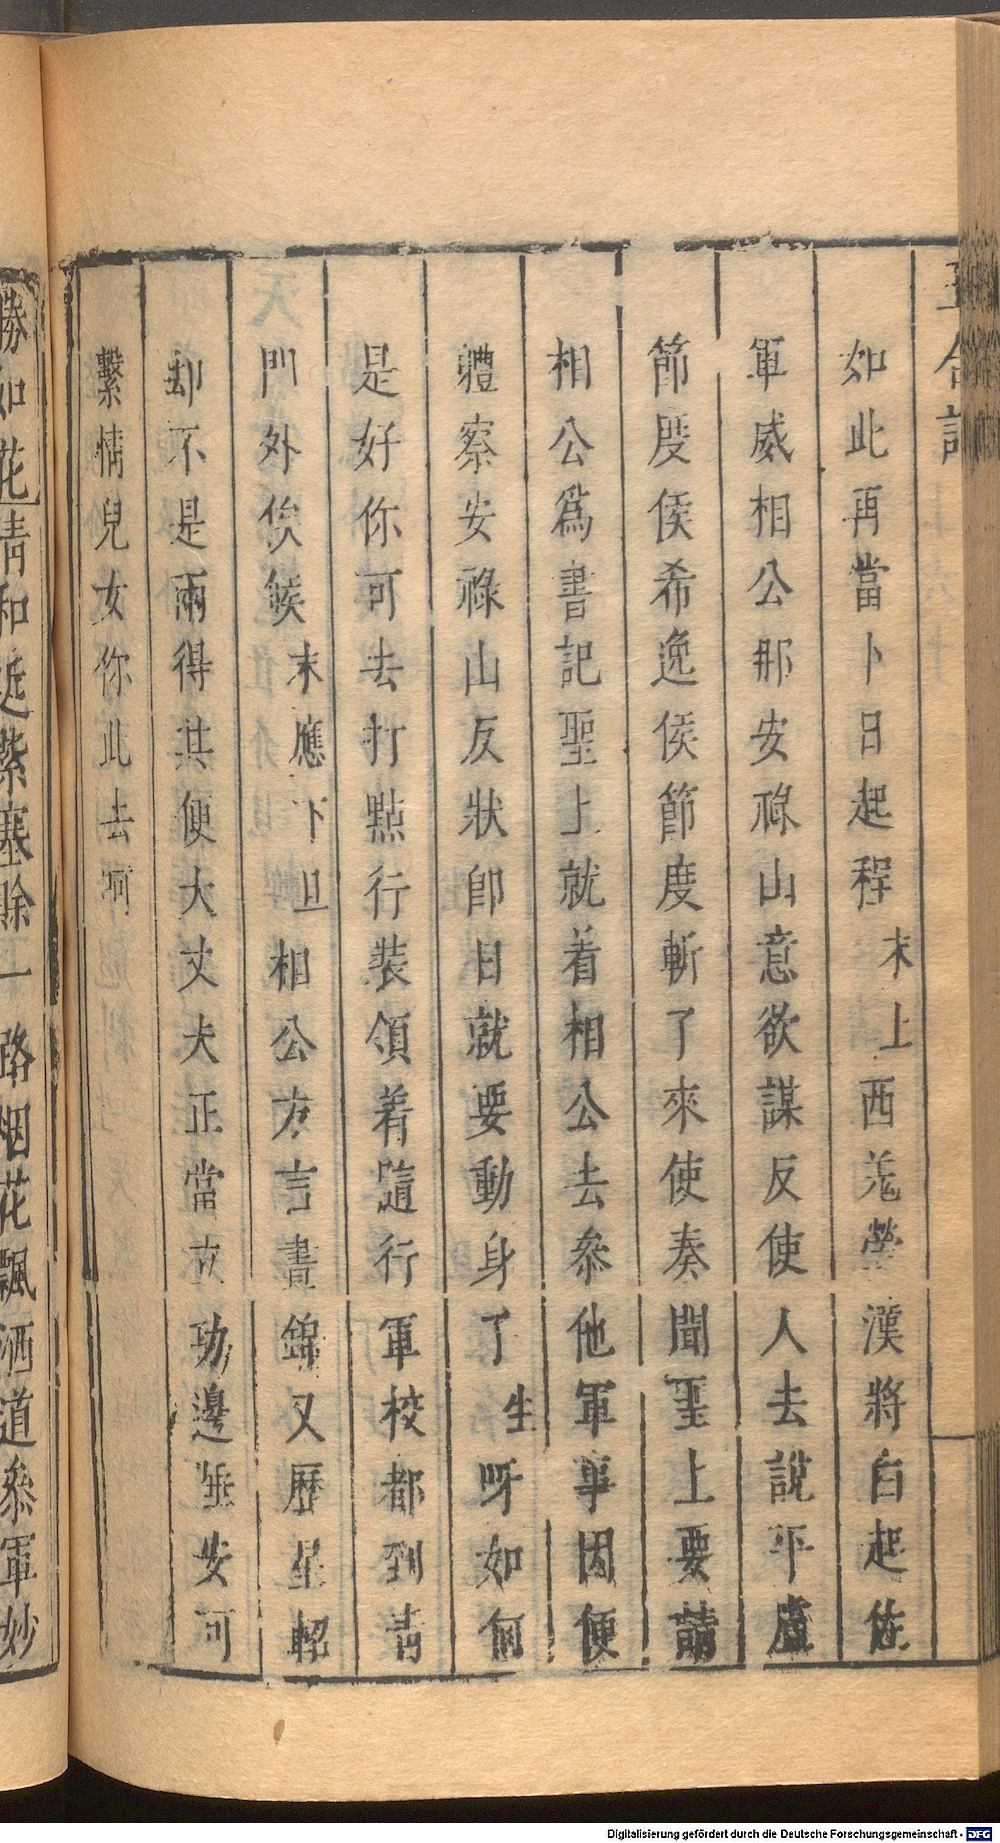 玉合記
如此再當卜日起程末上西羌營漢將自起佐
軍威相公那安祿山意欲謀反使人去說平盧
節度侯希逸侯節度斬了來使奏聞聖上要請
相公爲書記聖上就着相公去叅他軍事因便
體察安祿山反狀卽日就要動身了生呀如何
是好你可去打點行裝領着隨行軍校都到靑
門外俟候末應下旦相公方言晝錦又歷星軺
却不是兩得其便大丈夫正當立功邊埀安可
繫情兒女你此去呵
勝如花淸和近紫塞賒一路烟花飄洒道叅軍妙
Digitalisierung gefördert durch die Deutsche Forschungsgemeinschaft - DFG